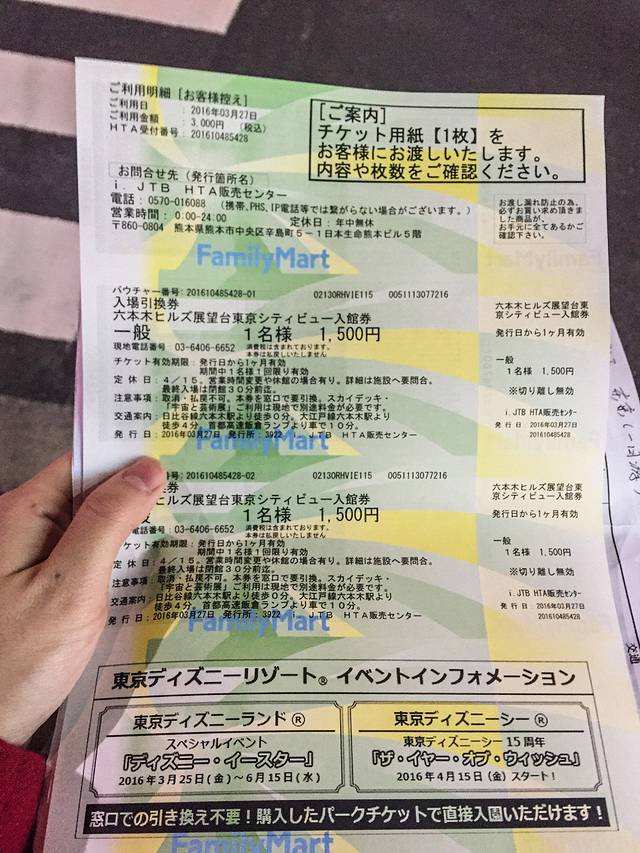 ご利用明細[お客様控え]
ご利用日 : 2016年03月27日
ご利用金額 : 3,000円 (税込)
HTA受付番号 : 201610485428
[ご案内]
チケット用紙【1枚】を
お客様にお渡しいたします。
内容や枚数をご確認ください。
お問合せ先(発行箇所名)
i.JTB HTA販売センター
電話:0570-016088 (携帯、PHS、IP電話等では繋がらない場合がございます。)
営業時間:0:00-24:00 定休日:年中無休
〒860-0804 熊本県熊本市中央区辛島町5-1日本生命熊本ビル5階
お渡し漏れ防止の為、
必ずお買い求め頂きま
した商品が、
お手元に全てあるかご
確認下さい。
FamilyMart
バウチャー番号:201610485428-01 02130RHVIE115 0051113077216
入場引換券
六本木ヒルズ展望台東京シティビュー入館券
一般 1名様 1,500円
現地電話番号 03-6406-6652 消費税は含まれております。
本券は払戻しいたしません
チケット有効期限:発行日から1ヶ月有効
期間中1名様1回限り有効
定休日:4/15。営業時間変更や休館の場合有り。詳細は施設へ要問合。
最終入場は閉館30分前迄。
注意事項:取消・払戻不可。本券を窓口で要引換。スカイデッキ・
「宇宙と芸術展」ご利用は現地で別途料金が必要です。
交通案内:日比谷線六本木駅より徒歩0分。大江戸線六本木駅より
徒歩4分。首都高速飯倉ランプより車で10分。
発行日:2016年03月27日 発行所:3922 i.JTB HTA販売センター
FamilyMart
六本木ヒルズ展望台東
京シティビュー入館券
発行日から1ヶ月有効
一般
1名様 1,500円
※切り離し無効
i.JTB HTA販売センター
発行日 2016年03月27日
201610485428
号:201610485428-02 02130RHVIE115 0051113077216
換券
六本木ヒルズ展望台東京シティビュー入館券
般 1名様 1,500円
電話番号 03-6406-6652 消費税は含まれております。
本券は払戻しいたしません
チケット有効期限:発行日から1ヶ月有効
期間中1名様1回限り有効
定休日:4/15。営業時間変更や休館の場合有り。詳細は施設へ要問合。
最終入場は閉館30分前迄。
注意事項:取消・払戻不可。本券を窓口で要引換。スカイデッキ・
「宇宙と芸術展」ご利用は現地で別途料金が必要です。
交通案内:日比谷線六本木駅より徒歩0分。大江戸線六本木駅より
徒歩4分。首都高速飯倉ランプより車で10分。
発行日:2016年03月27日 発行所:3922 i.JTB HTA販売センター
FamilyMart
六本木ヒルズ展望台東
京シティビュー入館券
発行日から1ヶ月有効
一般
1名様 1,500円
※切り離し無効
i.JTB HTA販売センター
発行日 2016年03月27日
201610485428
東京ディズニーリゾート® イベントインフォメーション
東京ディズニーランド®
スペシャルイベント
「ディズニー・イースター」
2016年3月25日(金)~6月15日(水)
東京ディズニーシー®
東京ディズニーシー15周年
「ザ・イヤー・オブ・ウィッシュ」
2016年4月15日(金)スタート!
窓口での引き換え不要!購入したパークチケットで直接入園いただけます!
FamilyMart